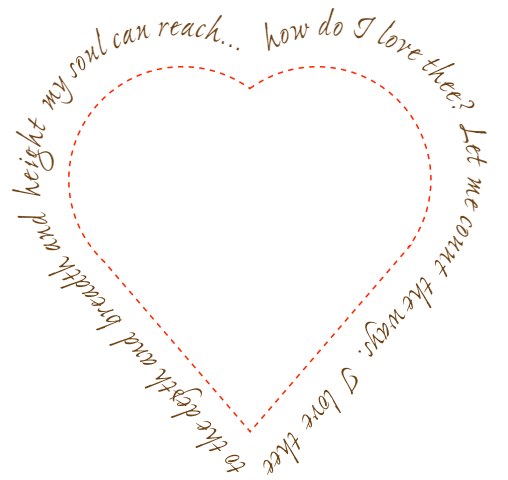 how do I love thee? Let me count the ways. I love thee to the depth and breadth and height my soul can reach...